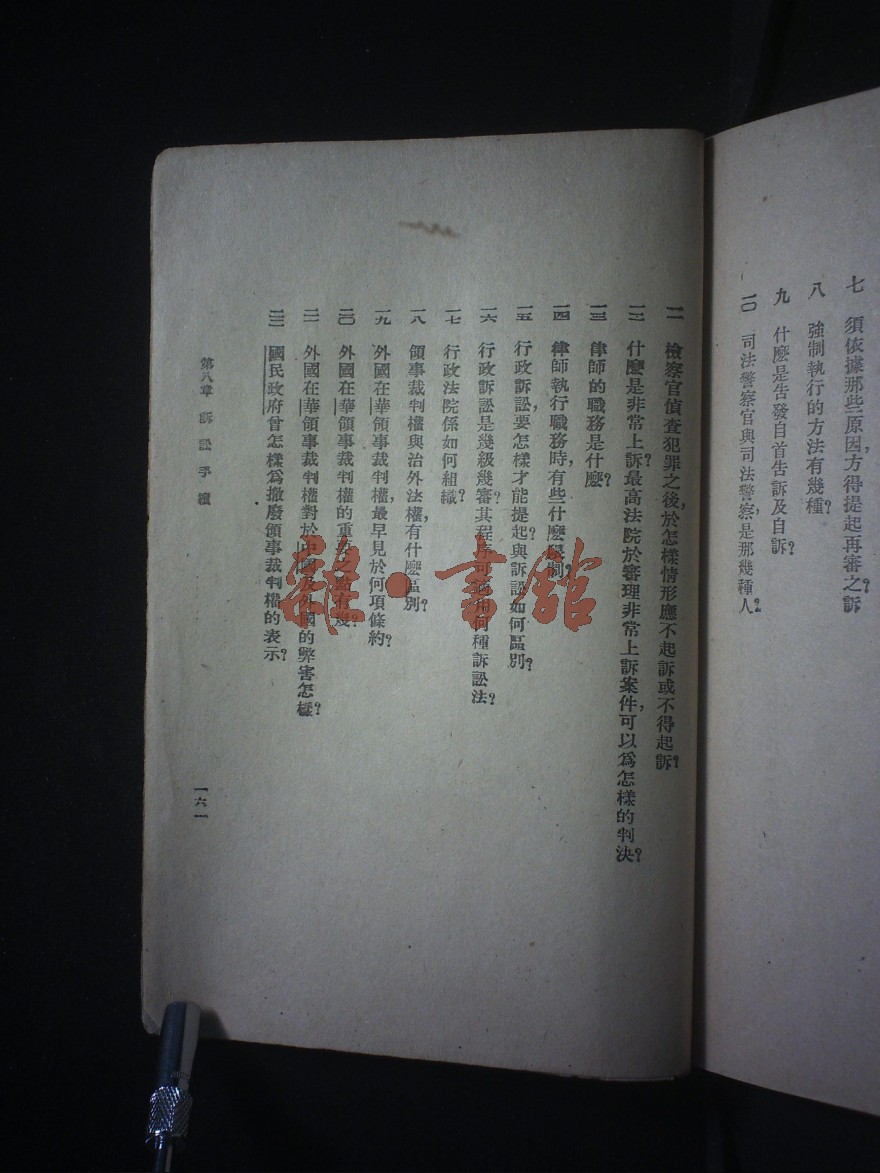 七 須依據那些原因，方得提起再審之訴
八 強制執行的方法有幾種？
九 什麽是告發自首告訴及自訴？
一〇 司法警察官與司法警察，是那幾種人？
一一 檢察官偵查犯罪之後，於怎樣情形應不起訴或不得起訴？
一二 什麽是非常上訴？最高法院於審理非常上訴案件，可以爲怎樣的判決？
一三 律師的職務是什麽？
一四 律師執行職務時，有些什麽限制？
一五 行政訴訟，要怎樣才能提起？與訴訟如何區別？
一六 行政訴訟是幾級幾審？其程序可適用何種訴訟法？
一七 行政法院係如何組織？
一八 領事裁判權與治外法權，有什麽區別？
一九 外國在華領事裁判權，最早見於何項條約？
二〇 外國在華領事裁判權的重要之點有幾？
二一 外國在華領事裁判權對於中國及外國的弊害怎樣？
二二 國民政府曾怎樣爲撤廢領事裁判權的表示？
第八章 訴訟手續
一六一
雜·書館